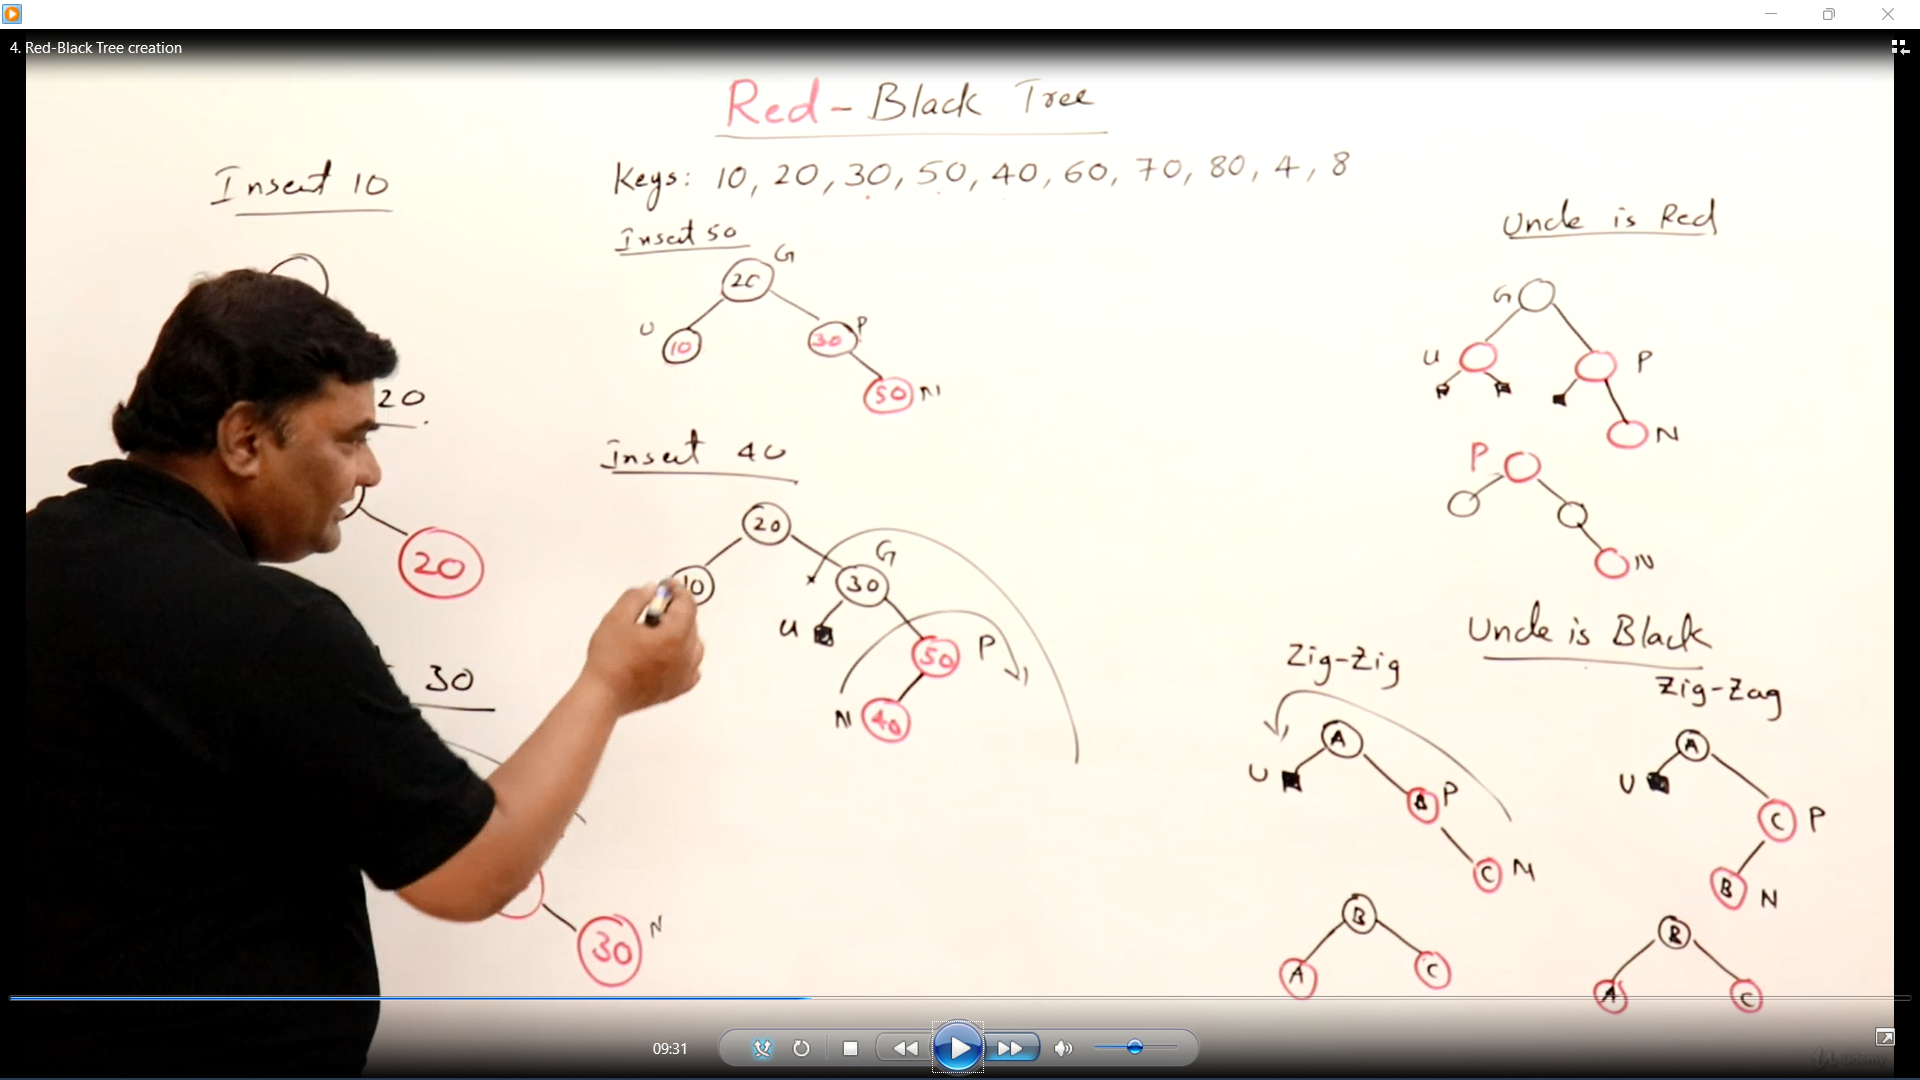 4. Red-Black Tree creation
Red - Black Tree
Keys: 10, 20, 30, 50, 40, 60, 70, 80, 4, 8
Insert 10
20
20
30
30 N
Insert 50
G
20
U
10
P
30
50 N
Insert 40
20
G
10
30
U
50 P
N 40
Uncle is Red
G
U
P
N
P
N
Uncle is Black
Zig-Zig
A
U
P
C N
B
A
C
Zig-Zag
A
U
C P
B N
B
A
C
09:31